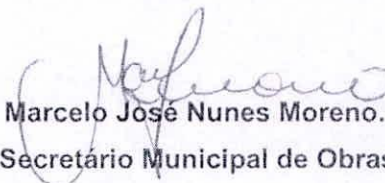 Marcelo José Nunes Moreno.
Secretário Municipal de Obras